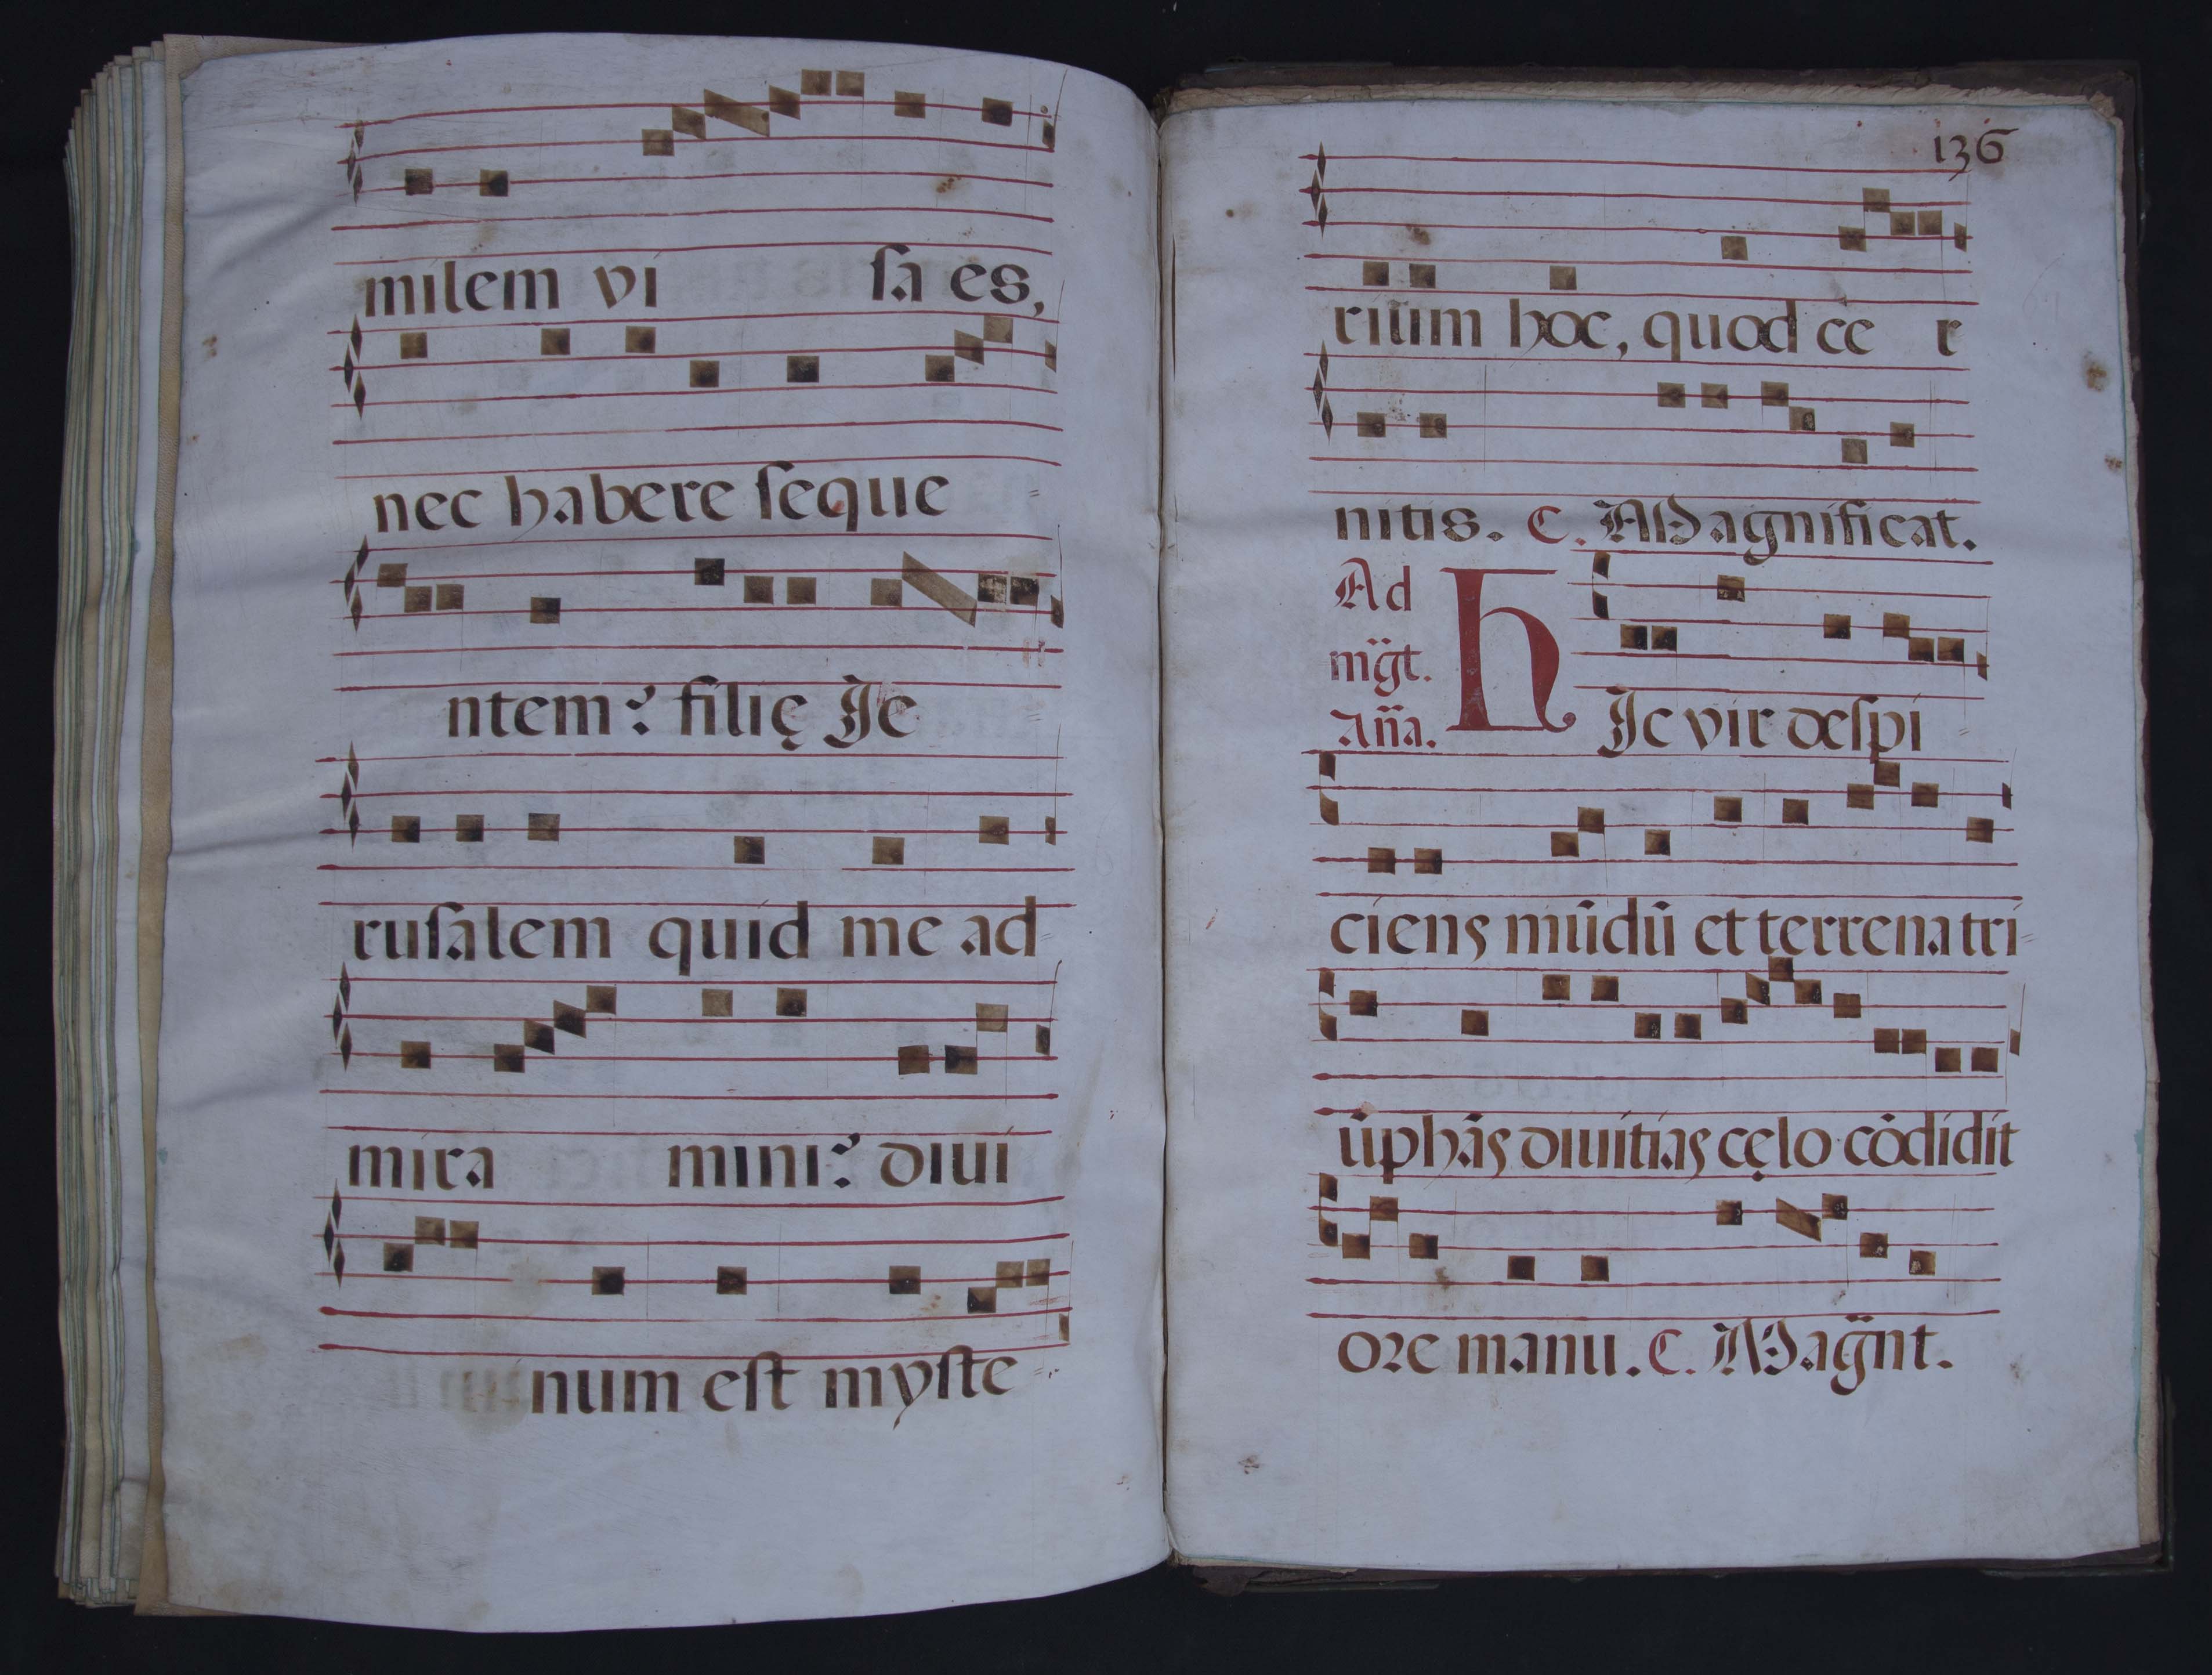 milem vi sa es,
nec habere seque
ntem? filię Je
rusalem quid me ad
mira mini? diui
num est myste
136
riũm hoc, quod ce r
nitis. C. Magnificat.
Ad
mg̃t.
Añã.
h Ic vir despi
ciens mũdũ et terrena tri
ũphãs diuitias cęlo cõdidit
ore manu. C. Mag̃nt.